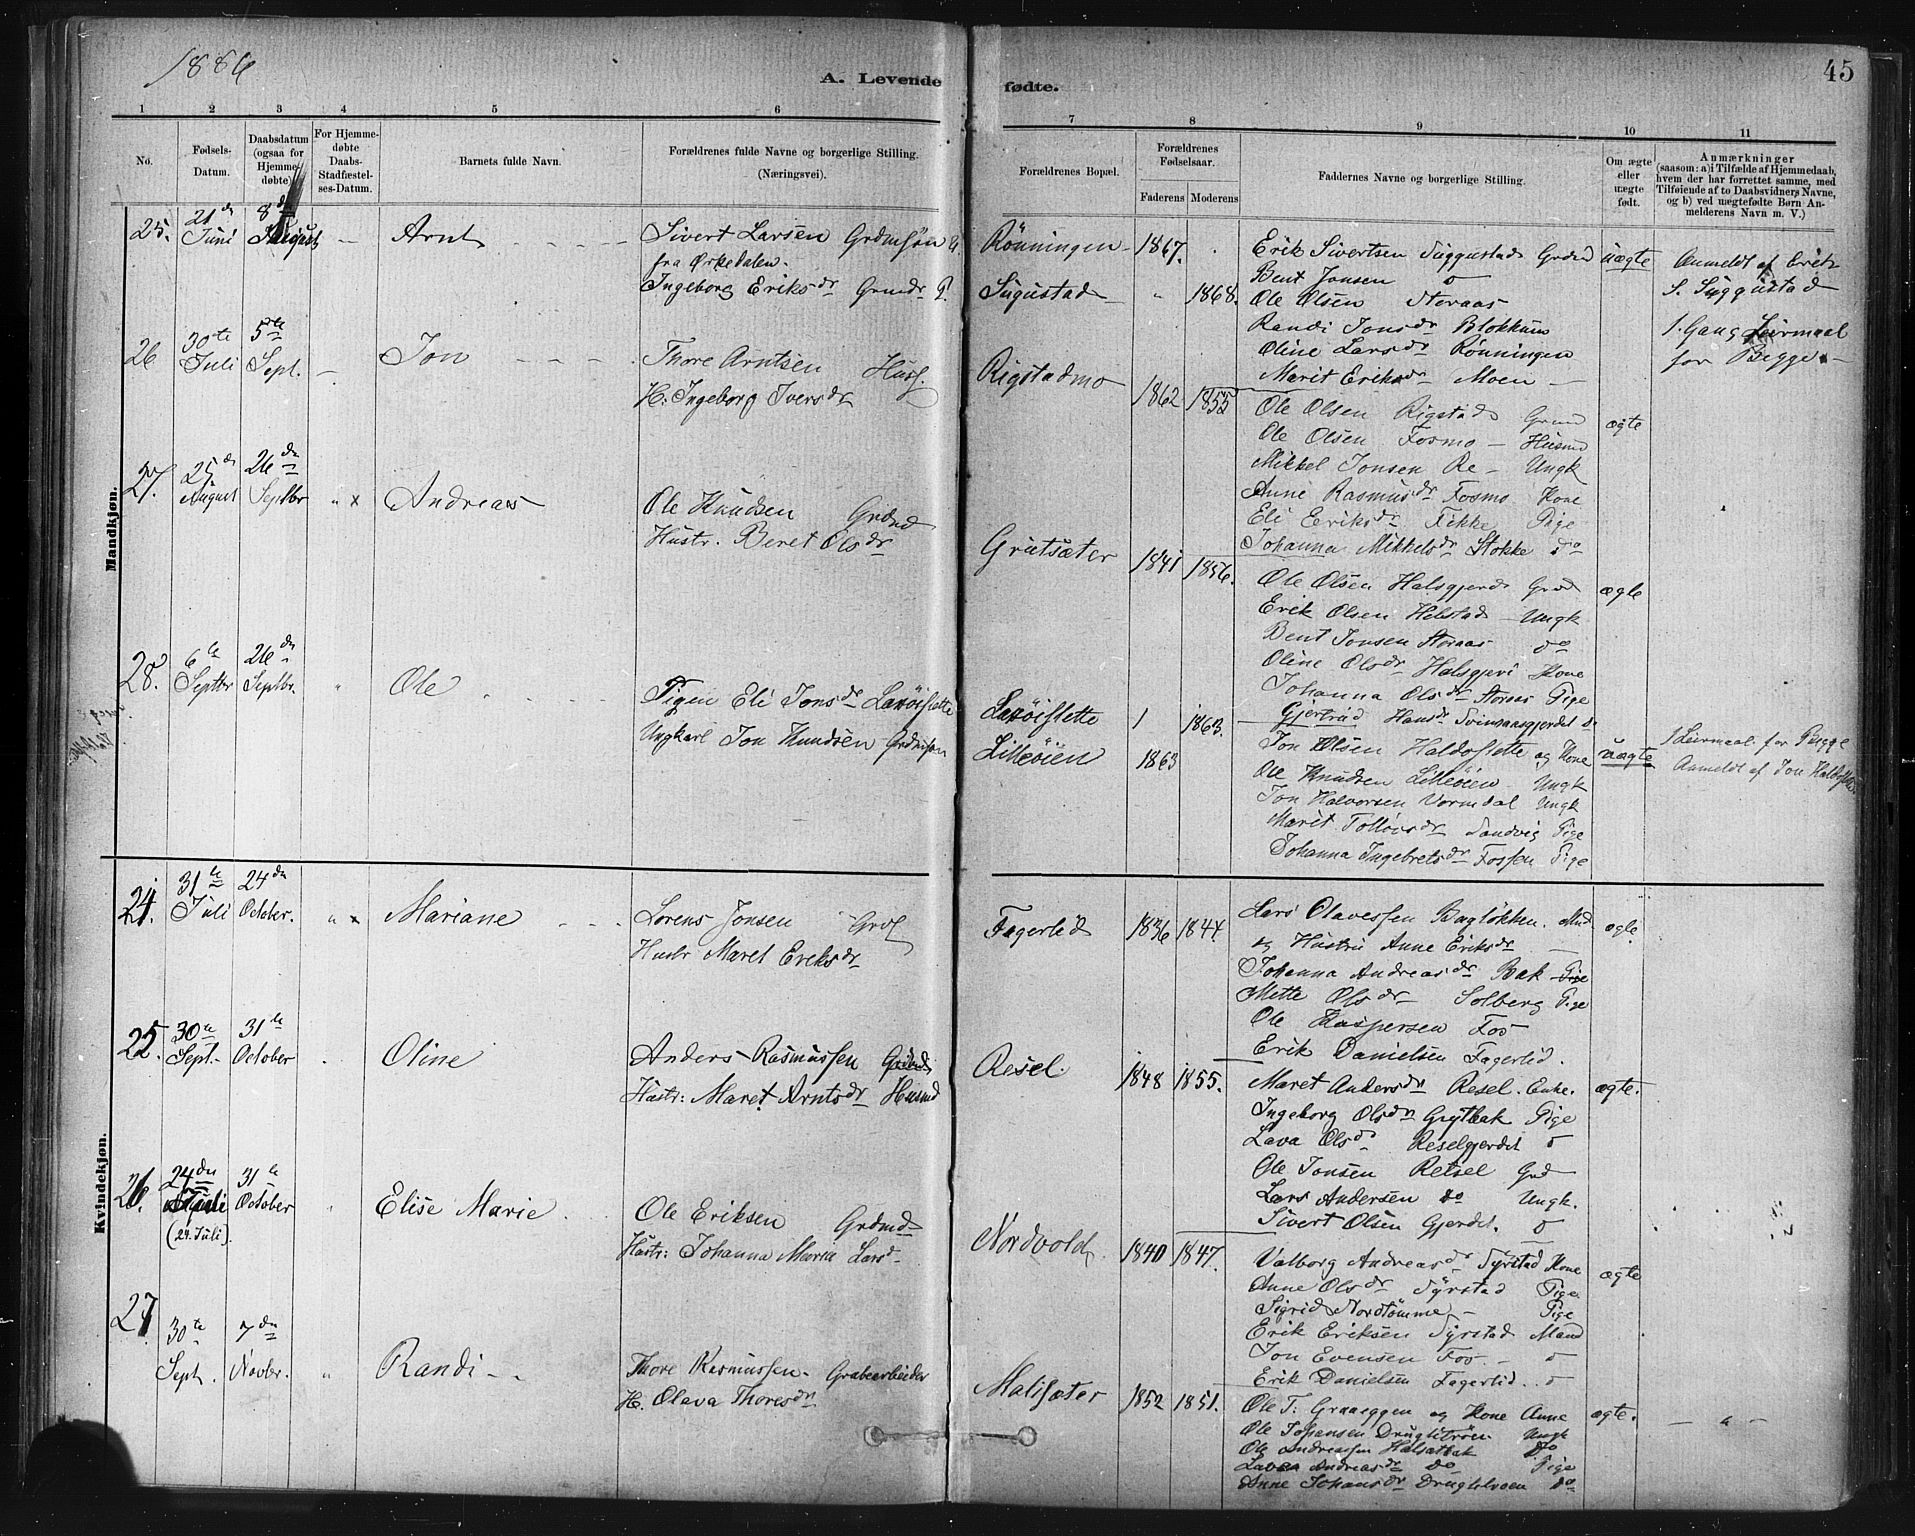 1886
A. Levende fødte.
45
1 2 3 4 5 6 7 8 9 10 11
No.
Fødsels-Datum.
Daabsdatum (ogsaa for Hjemme-døbte)
For Hjemme-døbte Daabs-Stadfæstel-ses-Datum.
Barnets fulde Navn.
Forældrenes fulde Navne og borgerlige Stilling.
(Næringsvei).
Forældrenes Bopæl.
Forældrenes Fødselsaar.
Faderens Moderens
Faddernes Navne og borgerlige Stilling.
Om ægte eller uægte født.
Anmærkninger
(saasom: a) i Tilfælde af Hjemmedaab,
hvem der har forrettet samme, med
Tilføiende af to Daabsvidners Navne,
og b) ved uægtefødte Børn An-
melderens Navn m. V.)
Mandkjøn.
25. 21de Juni 8de August — Arnt
Sivert Larsen Grdmsøn
fra Ørkedalen.
Ingeborg Eriksdr Grmdr P.
Rönningen 1867.
Sugustad " 1868.
Erik Sivertsen Suggustad Grdmd
Bent Jonsen
Ole Olsen Storaas
Randi Jonsdr Blokkum
Oline Larsdr Rønningen
Marit Eriksdr Moen
uægte
Anmeldt af Erik
S. Suggustad
1. Gang Leirmaal
for Begge.
26 30te Juli 5te Sept. — Jon
Thore Arntsen Husf.
H: Ingeborg Iversdr
Rigstadmo 1862 1855
Ole Olsen Rigstad Grmd
Ole Olsen Fosmo — Husmd
Mikkel Jonsen Re — Ungk
Anne Rasmusdr Fosmo Kone
Eli Eeriksdr Fikke Pige
Johanna Mikkelsdr Stokke do
ægte
27. 25de August 26de Septbr " x Andreas
Ole Knudsen Grdmd
Hustr. Beret Olsdr
Grutsæter 1841 1856.
Ole Olsen Halsgjerd Grd
Erik Olsen Helstad Ungk
Bent Jonsen Storaas do
Oline Olsdr Halsgjerd Kone
Johanna Olsdr Storaas Pige
Gjertrud Hansdr Svinsaasgjerdet d
ægte
28. 6te Septbr 26de Septbr. " Ole
Pigen Eli Jonsdr Laxöislette
Ungkarl Jon Knudsen Grdmsøn
Laxöislette 1 1863.
Lilleöien 1863
Jon Olsen Haldoslette og Kone
Ole Knudsen Lilleöien Ungk
Jon Halvorsen Vormdal Ungk
Marit Tollevsdr Sandvig Pige
Johanna Ingebretsdr Fossen Pige
uægte
1 Leirmaal for Begge
Anmeldt af Jon Haldoslette.
Kvindekjøn.
24. 31te Juli 24de October. " x Mariane
Lorens Jonsen
Hustr Maret Eriksdr
Fagerlid 1836 1844.
Lars Olavessen Bagløkken. Md
og Hustru Anne Eriksdr
Johanna Andreasdr Bak Pige
Mette Olsdr Solberg Pige
Ole Kaspersen Fos
Erik Danielsen Fagerlid.
ægte
25. 30te Sept. 31te October Oline
Anders Rasmussen
Hustr: Maret Arntsdr Husmd
Resel. 1848 1855.
Maret Andersdr Resel. Enke.
Ingeborg Olsdr Grytbak Pige
Lava Olsdr Reselgjerdet d
Ole Jonsen Retsel Grd
Lars Andersen do Ungk.
Sivert Olsen Gjerdet. d
ægte.
26. 24de Juli (24. Juli). 31te October " Elise Marie
Ole Eriksen Grdmd
Hustr: Johanna Maria Larsd
Nordvold 1840 1847.
Valborg Andreasdr Syrstad Kone
Anne Olsdr Syrstad Pige
Sigrid Nordtømme — Pige
Erik Eriksen Syrstad Mand
Jon Evensen Fos — d
Erik Danielsen Fagerlid. d
ægte
27 30te Sept. 7de Novbr. " Randi
Thore Rasmussen. Grubearbeider
H. Olava Thoresdr
Malisæter 1852 1851.
Ole T: Graaeggen og Kone Anne
Ole Johansen Druglitrøen Ungk
Ole Andreassen Halsetbak do
Lava Andreasdr do Pige
Anne Johansdr Drugtelvoen do
ægte.
— " —